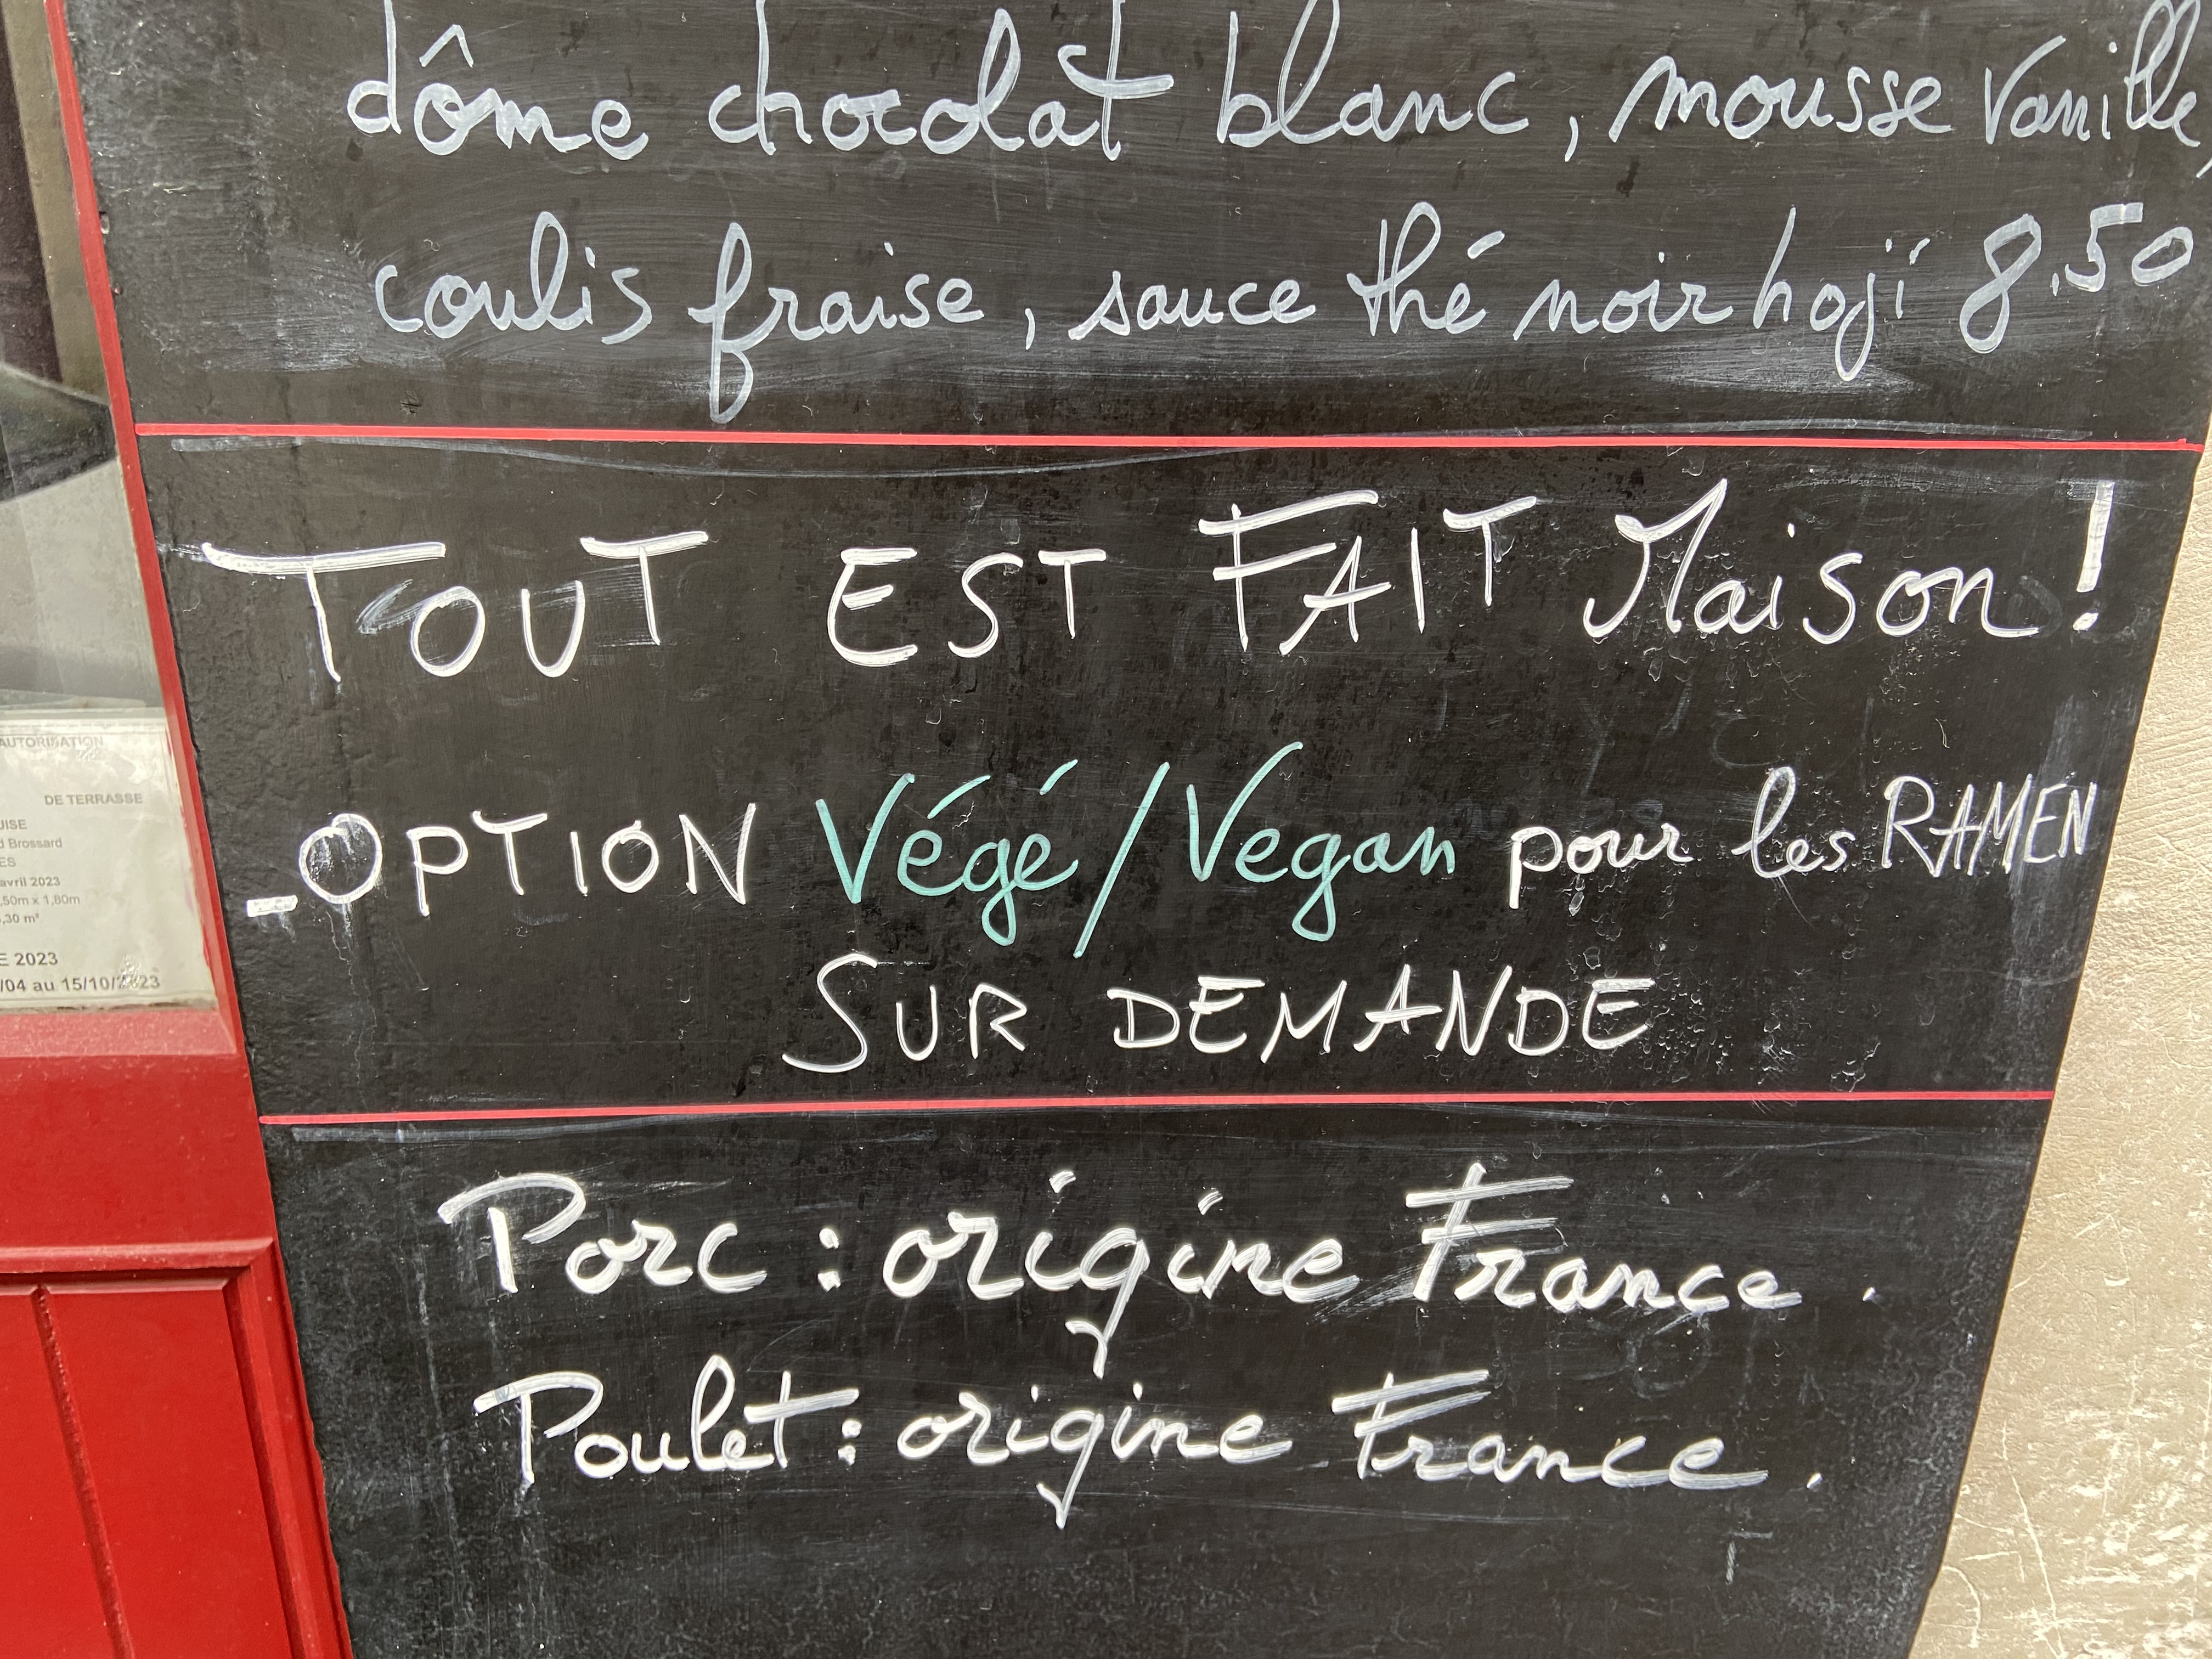 dôme chocolat blanc, mousse Vanille,
coulis fraise, sauce thé noir hoji 8.50
TOUT EST FAIT Maison !
-OPTION Végé/Vegan pour les RAMEN
SUR DEMANDE
Porc : origine France.
Poulet : origine France.
AUTORISATION
DE TERRASSE
Brossard
avril 2023
,50m x 1,80m
,30 m²
2023
/04 au 15/10/2023